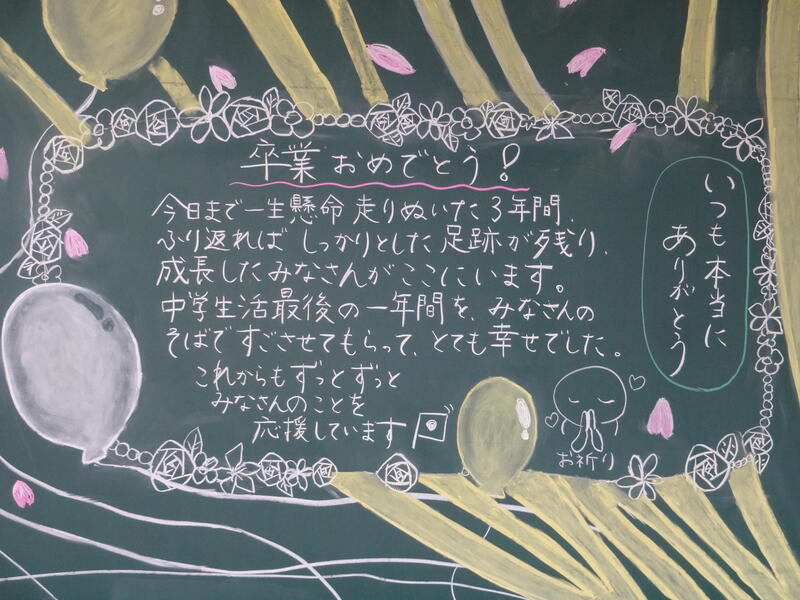 卒業おめでとう!
今日まで一生懸命走りぬいた3年間、
ふり返れば しっかりとした足跡が残り、
成長したみなさんがここにいます。
中学生活最後の一年間を、みなさんの
そばですごさせてもらって、とても幸せでした。
これからもずっとずっと
みなさんのことを
応援しています
お祈り
いつも本当に
ありがとう